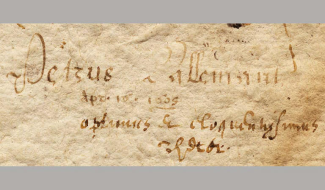 Petrus Lallemant
Apr. 16. 1635
optimus et eloquentissimus
Rhetor.